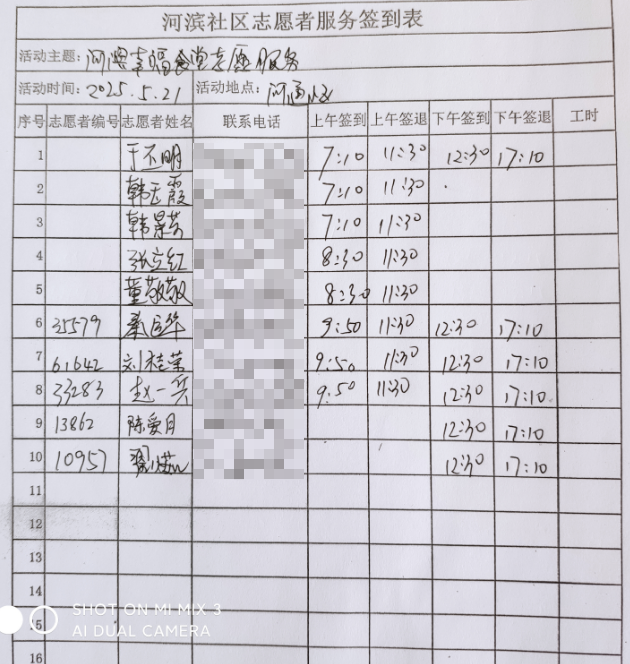 河滨社区志愿者服务签到表
活动主题: 河滨幸福食堂志愿服务
活动时间: 2025.5.21 活动地点: 河
序号 志愿者编号 志愿者姓名 联系电话 上午签到 上午签退 下午签到 下午签退 工时
1 于丕明 7:10 11:30 12:30 17:10
2 韩玉霞 7:10 11:30
3 韩景芳 7:10 11:30
4 张立红 8:30 11:30
5 董敬敬 8:30 11:30
6 35579 9:50 11:30 12:30 17:10
7 61642 刘桂荣 9:50 11:30 12:30 17:10
8 33283 赵一兵 9:50 11:30 12:30 17:10
9 13862 陈爱月 12:30 17:10
10 10957 12:30 17:10
11
12
13
14
15
16
SHOT ON MI MIX 3
AI DUAL CAMERA